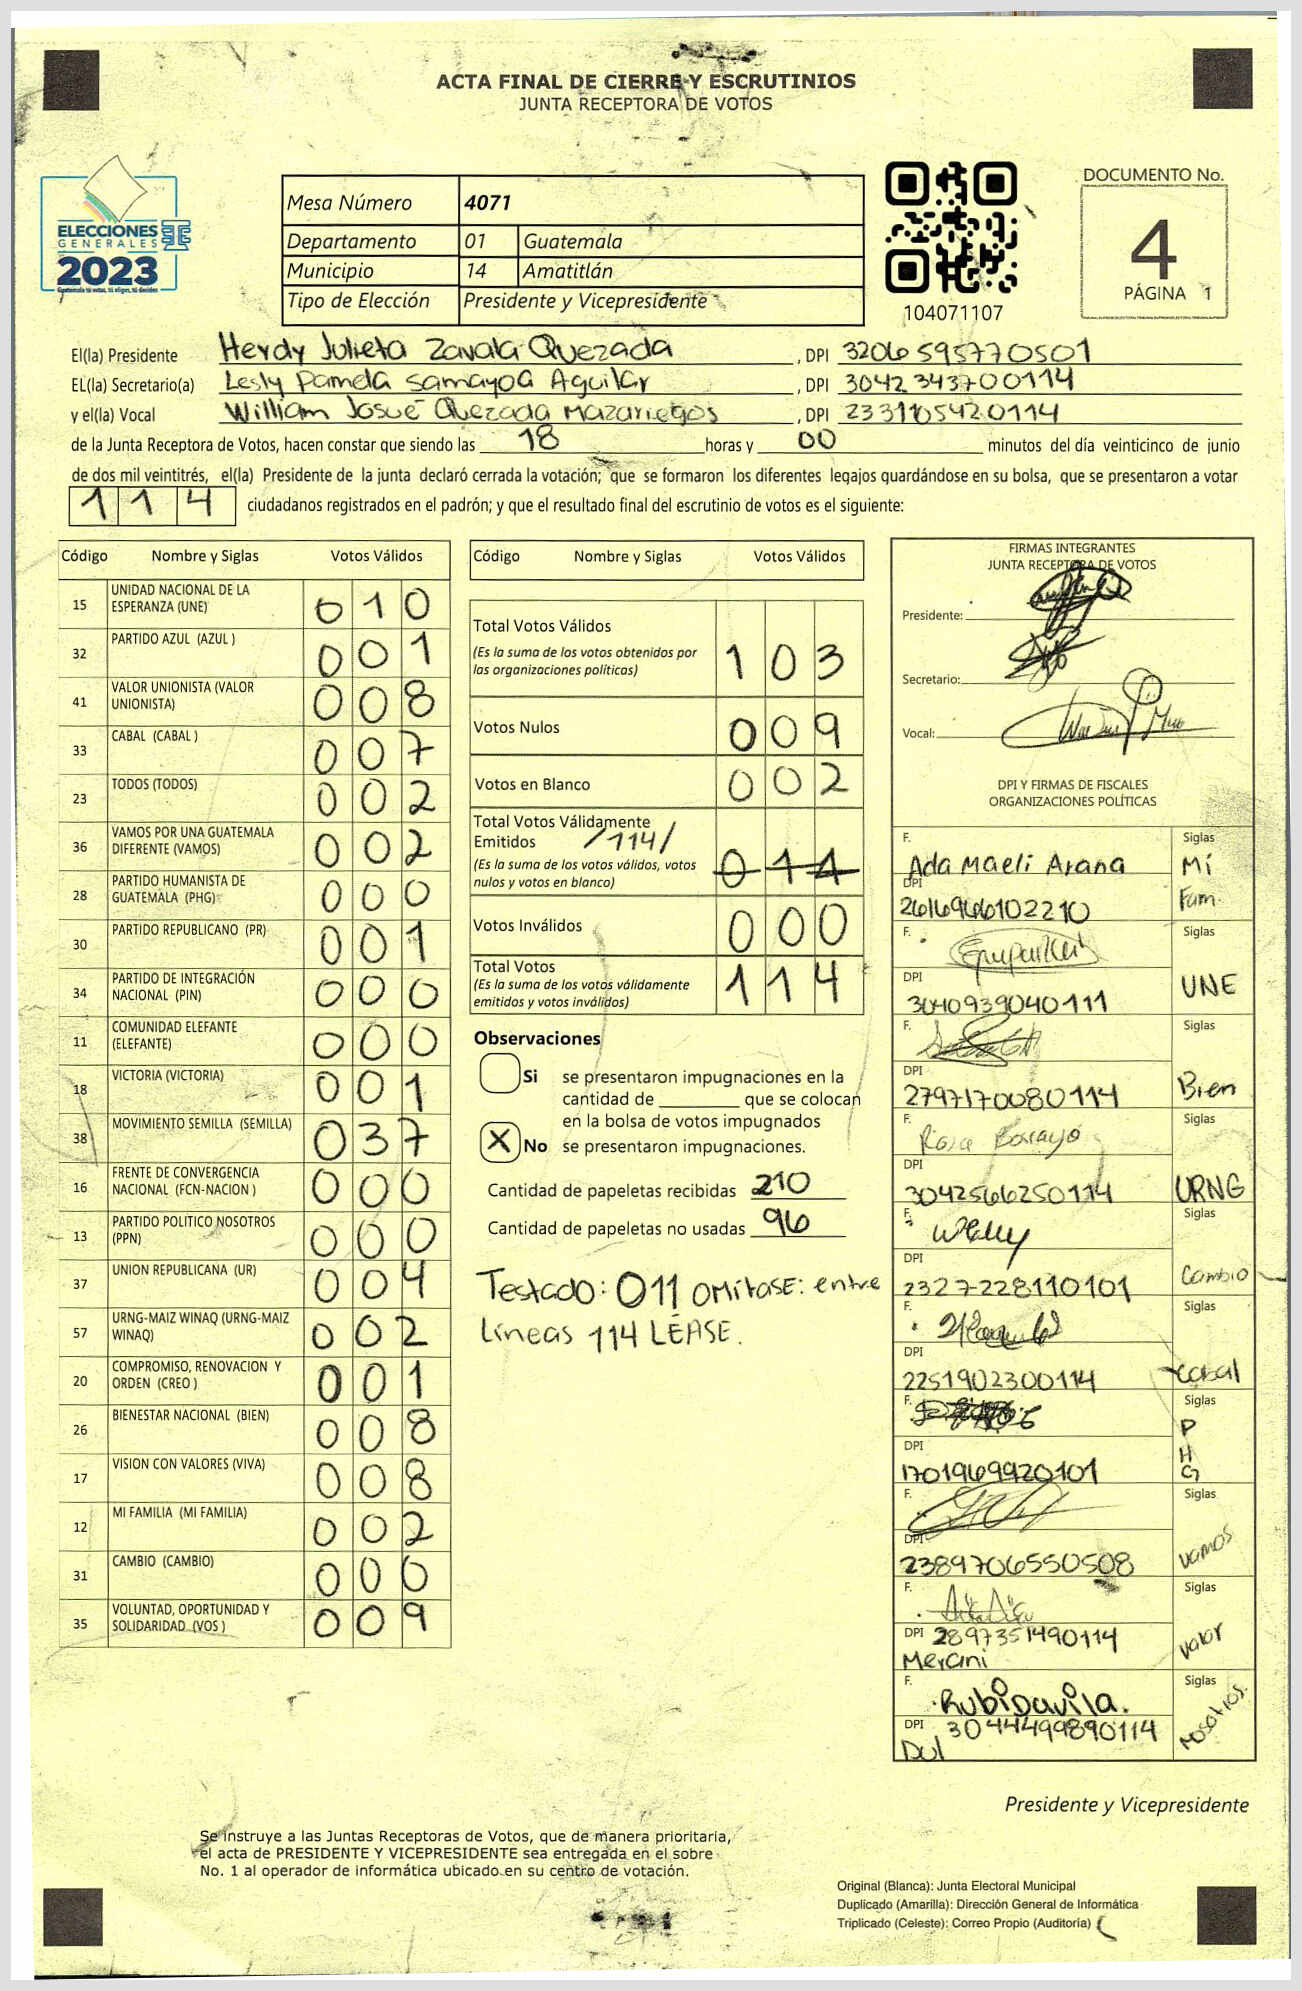 ACTA FINAL DE CIERRE Y ESCRUTINIOS
JUNTA RECEPTORA DE VOTOS
ELECCIONES
GENERALES
2023
Guatemala tú votas, tú eliges, tú decides
Mesa Número 4071
Departamento 01 Guatemala
Municipio 14 Amatitlán
Tipo de Elección Presidente y Vicepresidente
104071107
DOCUMENTO No.
4
PÁGINA 1
El(la) Presidente Heydy Julieta Zavala Quezada , DPI 3206595770501
EL(la) Secretario(a) Lesly Pamela Samayoa Aguilar , DPI 3042343700114
y el(la) Vocal William Josué Quezada Mazariegos , DPI 2331105420114
de la Junta Receptora de Votos, hacen constar que siendo las 18 horas y 00 minutos del día veinticinco de junio
de dos mil veintitrés, el(la) Presidente de la junta declaró cerrada la votación; que se formaron los diferentes legajos guardándose en su bolsa, que se presentaron a votar
114 ciudadanos registrados en el padrón; y que el resultado final del escrutinio de votos es el siguiente:
Código Nombre y Siglas Votos Válidos
15 UNIDAD NACIONAL DE LA ESPERANZA (UNE) 010
32 PARTIDO AZUL (AZUL ) 001
41 VALOR UNIONISTA (VALOR UNIONISTA) 008
33 CABAL (CABAL ) 007
23 TODOS (TODOS) 002
36 VAMOS POR UNA GUATEMALA DIFERENTE (VAMOS) 002
28 PARTIDO HUMANISTA DE GUATEMALA (PHG) 000
30 PARTIDO REPUBLICANO (PR) 001
34 PARTIDO DE INTEGRACIÓN NACIONAL (PIN) 000
11 COMUNIDAD ELEFANTE (ELEFANTE) 000
18 VICTORIA (VICTORIA) 001
38 MOVIMIENTO SEMILLA (SEMILLA) 037
16 FRENTE DE CONVERGENCIA NACIONAL (FCN-NACION ) 000
13 PARTIDO POLÍTICO NOSOTROS (PPN) 000
37 UNION REPUBLICANA (UR) 004
57 URNG-MAIZ WINAQ (URNG-MAIZ WINAQ) 002
20 COMPROMISO, RENOVACION Y ORDEN (CREO ) 001
26 BIENESTAR NACIONAL (BIEN) 008
17 VISION CON VALORES (VIVA) 008
12 MI FAMILIA (MI FAMILIA) 002
31 CAMBIO (CAMBIO) 000
35 VOLUNTAD, OPORTUNIDAD Y SOLIDARIDAD (VOS ) 009
Código Nombre y Siglas Votos Válidos
Total Votos Válidos 103
(Es la suma de los votos obtenidos por
las organizaciones políticas)
Votos Nulos 009
Votos en Blanco 002
Total Votos Válidamente
Emitidos /114/
(Es la suma de los votos válidos, votos
nulos y votos en blanco)
Votos Inválidos 000
Total Votos 114
(Es la suma de los votos válidamente
emitidos y votos inválidos)
Observaciones
Si se presentaron impugnaciones en la
cantidad de ________ que se colocan
en la bolsa de votos impugnados
X No se presentaron impugnaciones.
Cantidad de papeletas recibidas 210
Cantidad de papeletas no usadas 96
Testado: 011 OMITASE: entre
Lineas 114 LÉASE.
FIRMAS INTEGRANTES
JUNTA RECEPTORA DE VOTOS
Presidente:
Secretario:
Vocal:
DPI Y FIRMAS DE FISCALES
ORGANIZACIONES POLÍTICAS
F. Ada Maeli Arana Siglas Mi Fam.
DPI 2616966102210
F. Siglas UNE
DPI 3040939040111
F. Siglas Bien
DPI 2797170080114
F. Rosa Siglas URNG
DPI 3042566250114
F. Siglas Cambio
DPI 2327-228110101
F. Siglas Cabal
DPI 2251902300114
F. Siglas P H G
DPI 1701969920101
F. Siglas Vamos
DPI 2389706550508
F. Siglas Valor
DPI 2897351490114
F. Rubi Davila. Siglas Nosotros.
DPI 3044499890114
Presidente y Vicepresidente
Se instruye a las Juntas Receptoras de Votos, que de manera prioritaria,
el acta de PRESIDENTE Y VICEPRESIDENTE sea entregada en el sobre
No. 1 al operador de informática ubicado en su centro de votación.
Original (Blanca): Junta Electoral Municipal
Duplicado (Amarilla): Dirección General de Informática
Triplicado (Celeste): Correo Propio (Auditoría)